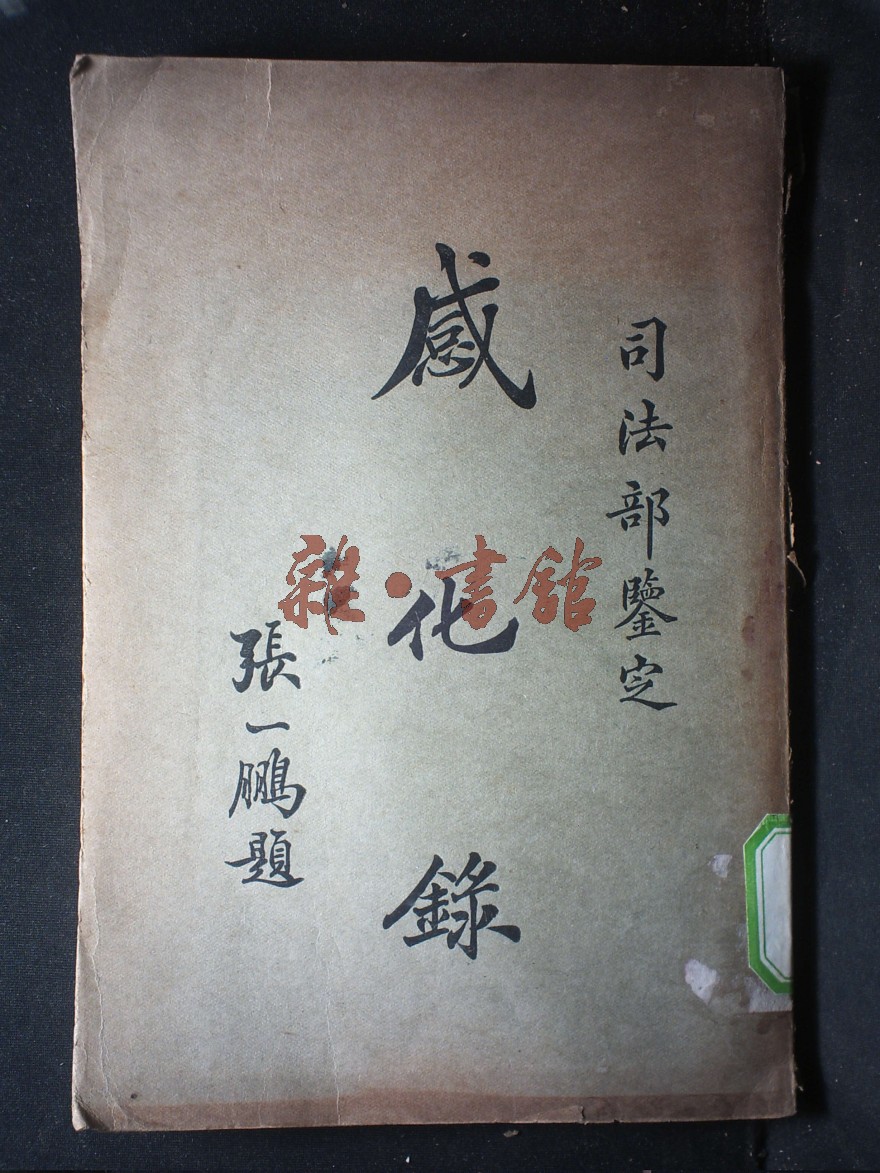 司法部鑒定
感化錄
張一鵬題
雜·書館